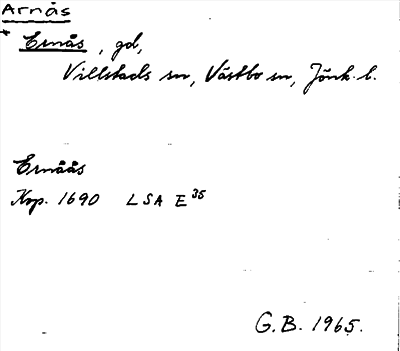 Arnås
* Ernås, gd,
Villstads sn, Västbo hd, Jönk. l.
Ernåås
Kop. 1690 LSA E 35
G.B. 1965.